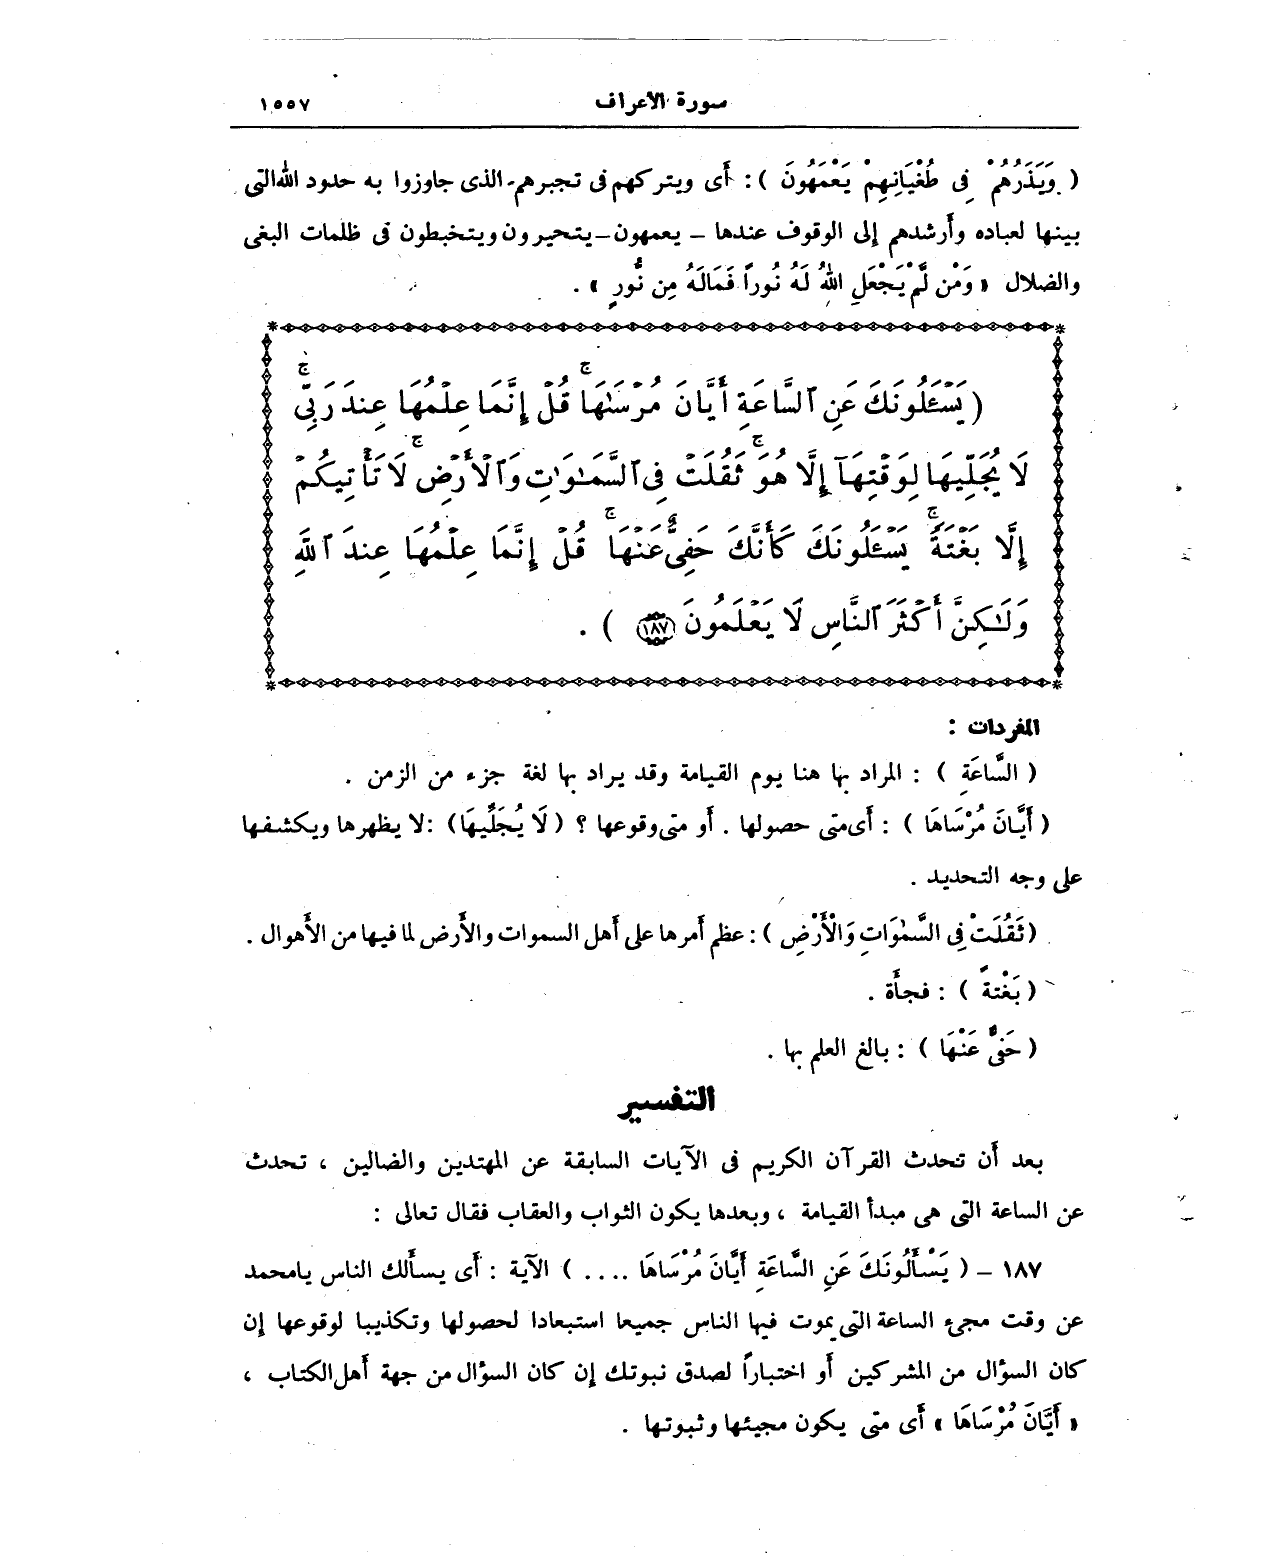 سورة الأعراف ١٥٥٧
( وَيَذَرُهُمْ فِى طُغْيَانِهِمْ يَعْمَهُونَ ) : أى ويتركهم فى تجبرهم الذى جاوزوا به حدود الله التى
بينها لعباده وأرشدهم إلى الوقوف عندها – يعمهون – يتحيرون ويتخبطون فى ظلمات البغى
والضلال « وَمَن لَّمْ يَجْعَلِ اللهُ لَهُ نُوراً فَمَالَهُ مِن نُّورٍ » .
( يَسْـَٔلُونَكَ عَنِ ٱلسَّاعَةِ أَيَّانَ مُرْسَىٰهَا ۖ قُلْ إِنَّمَا عِلْمُهَا عِندَ رَبِّى ۖ
لَا يُجَلِّيهَا لِوَقْتِهَآ إِلَّا هُوَ ۚ ثَقُلَتْ فِى ٱلسَّمَـٰوَٰتِ وَٱلْأَرْضِ ۚ لَا تَأْتِيكُمْ
إِلَّا بَغْتَةً ۗ يَسْـَٔلُونَكَ كَأَنَّكَ حَفِىٌّ عَنْهَا ۖ قُلْ إِنَّمَا عِلْمُهَا عِندَ ٱللَّهِ
وَلَـٰكِنَّ أَكْثَرَ ٱلنَّاسِ لَا يَعْلَمُونَ ١٨٧ ) .
المفردات :
( السَّاعَةِ ) : المراد بها هنا يوم القيامة وقد يراد بها لغة جزء من الزمن .
( أَيَّانَ مُرْسَاهَا ) : أى متى حصولها . أو متى وقوعها ؟ ( لَا يُجَلِّيهَا ) : لا يظهرها ويكشفها
على وجه التحديد .
( ثَقُلَتْ فِى السَّمٰوَاتِ وَالْأَرْضِ ) : عظم أمرها على أهل السموات والأرض لما فيها من الأهوال .
( بَغْتةً ) : فجأة .
( حَفِىٌّ عَنْهَا ) : بالغ العلم بها .
التفسير
بعد أن تحدث القرآن الكريم فى الآيات السابقة عن المهتدين والضالين ، تحدث
عن الساعة التى هى مبدأ القيامة ، وبعدها يكون الثواب والعقاب فقال تعالى :
١٨٧ – ( يَسْأَلُونَكَ عَنِ السَّاعَةِ أَيَّانَ مُرْسَاهَا .... ) الآية : أى يسألك الناس يامحمد
عن وقت مجىء الساعة التى يموت فيها الناس جميعا استبعادا لحصولها وتكذيبا لوقوعها إن
كان السؤال من المشركين أو اختباراً لصدق نبوتك إن كان السؤال من جهة أهل الكتاب ،
« أَيَّانَ مُرْسَاهَا » أى متى يكون مجيئها وثبوتها .